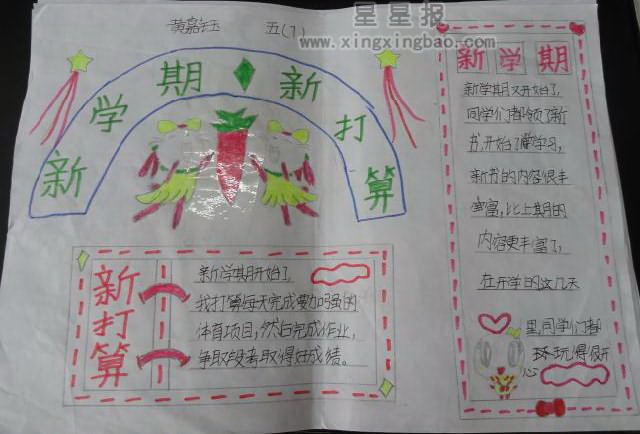 黄嘉钰 五(7)
星星报
www.xingxingbao.com
新学期新打算
新打算
新学期开始了,
我打算每天完成要加强的
体育项目,然后完成作业,
争取段考取得好成绩。
新学期
新学期又开始了,
同学们都领了新
书,开始了学习,
新书的内容很丰
富,比上期的
内容更丰富了,
在开学的这几天
里,同学们都
玩得很开
心